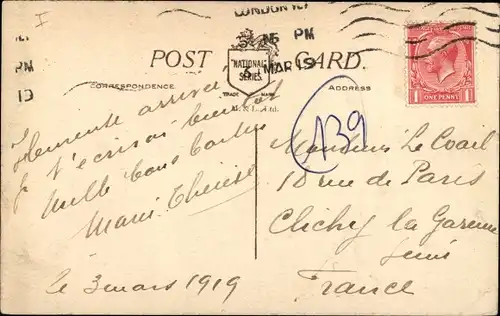 I
LONDON
PM
5 PM
6 MAR 19
19
POST CARD.
NATIONAL
SERIES
TRADE MARK
M. & L. Ltd.
CORRESPONDENCE
ADDRESS
ONE PENNY
1 1
139
Heureuse arrivée
je t'écrirai bientôt
Mille bons
Marie Thérèse
le 3 mars 1919
Monsieur Le
18 rue de Paris
Clichy la Garenne
Seine
France